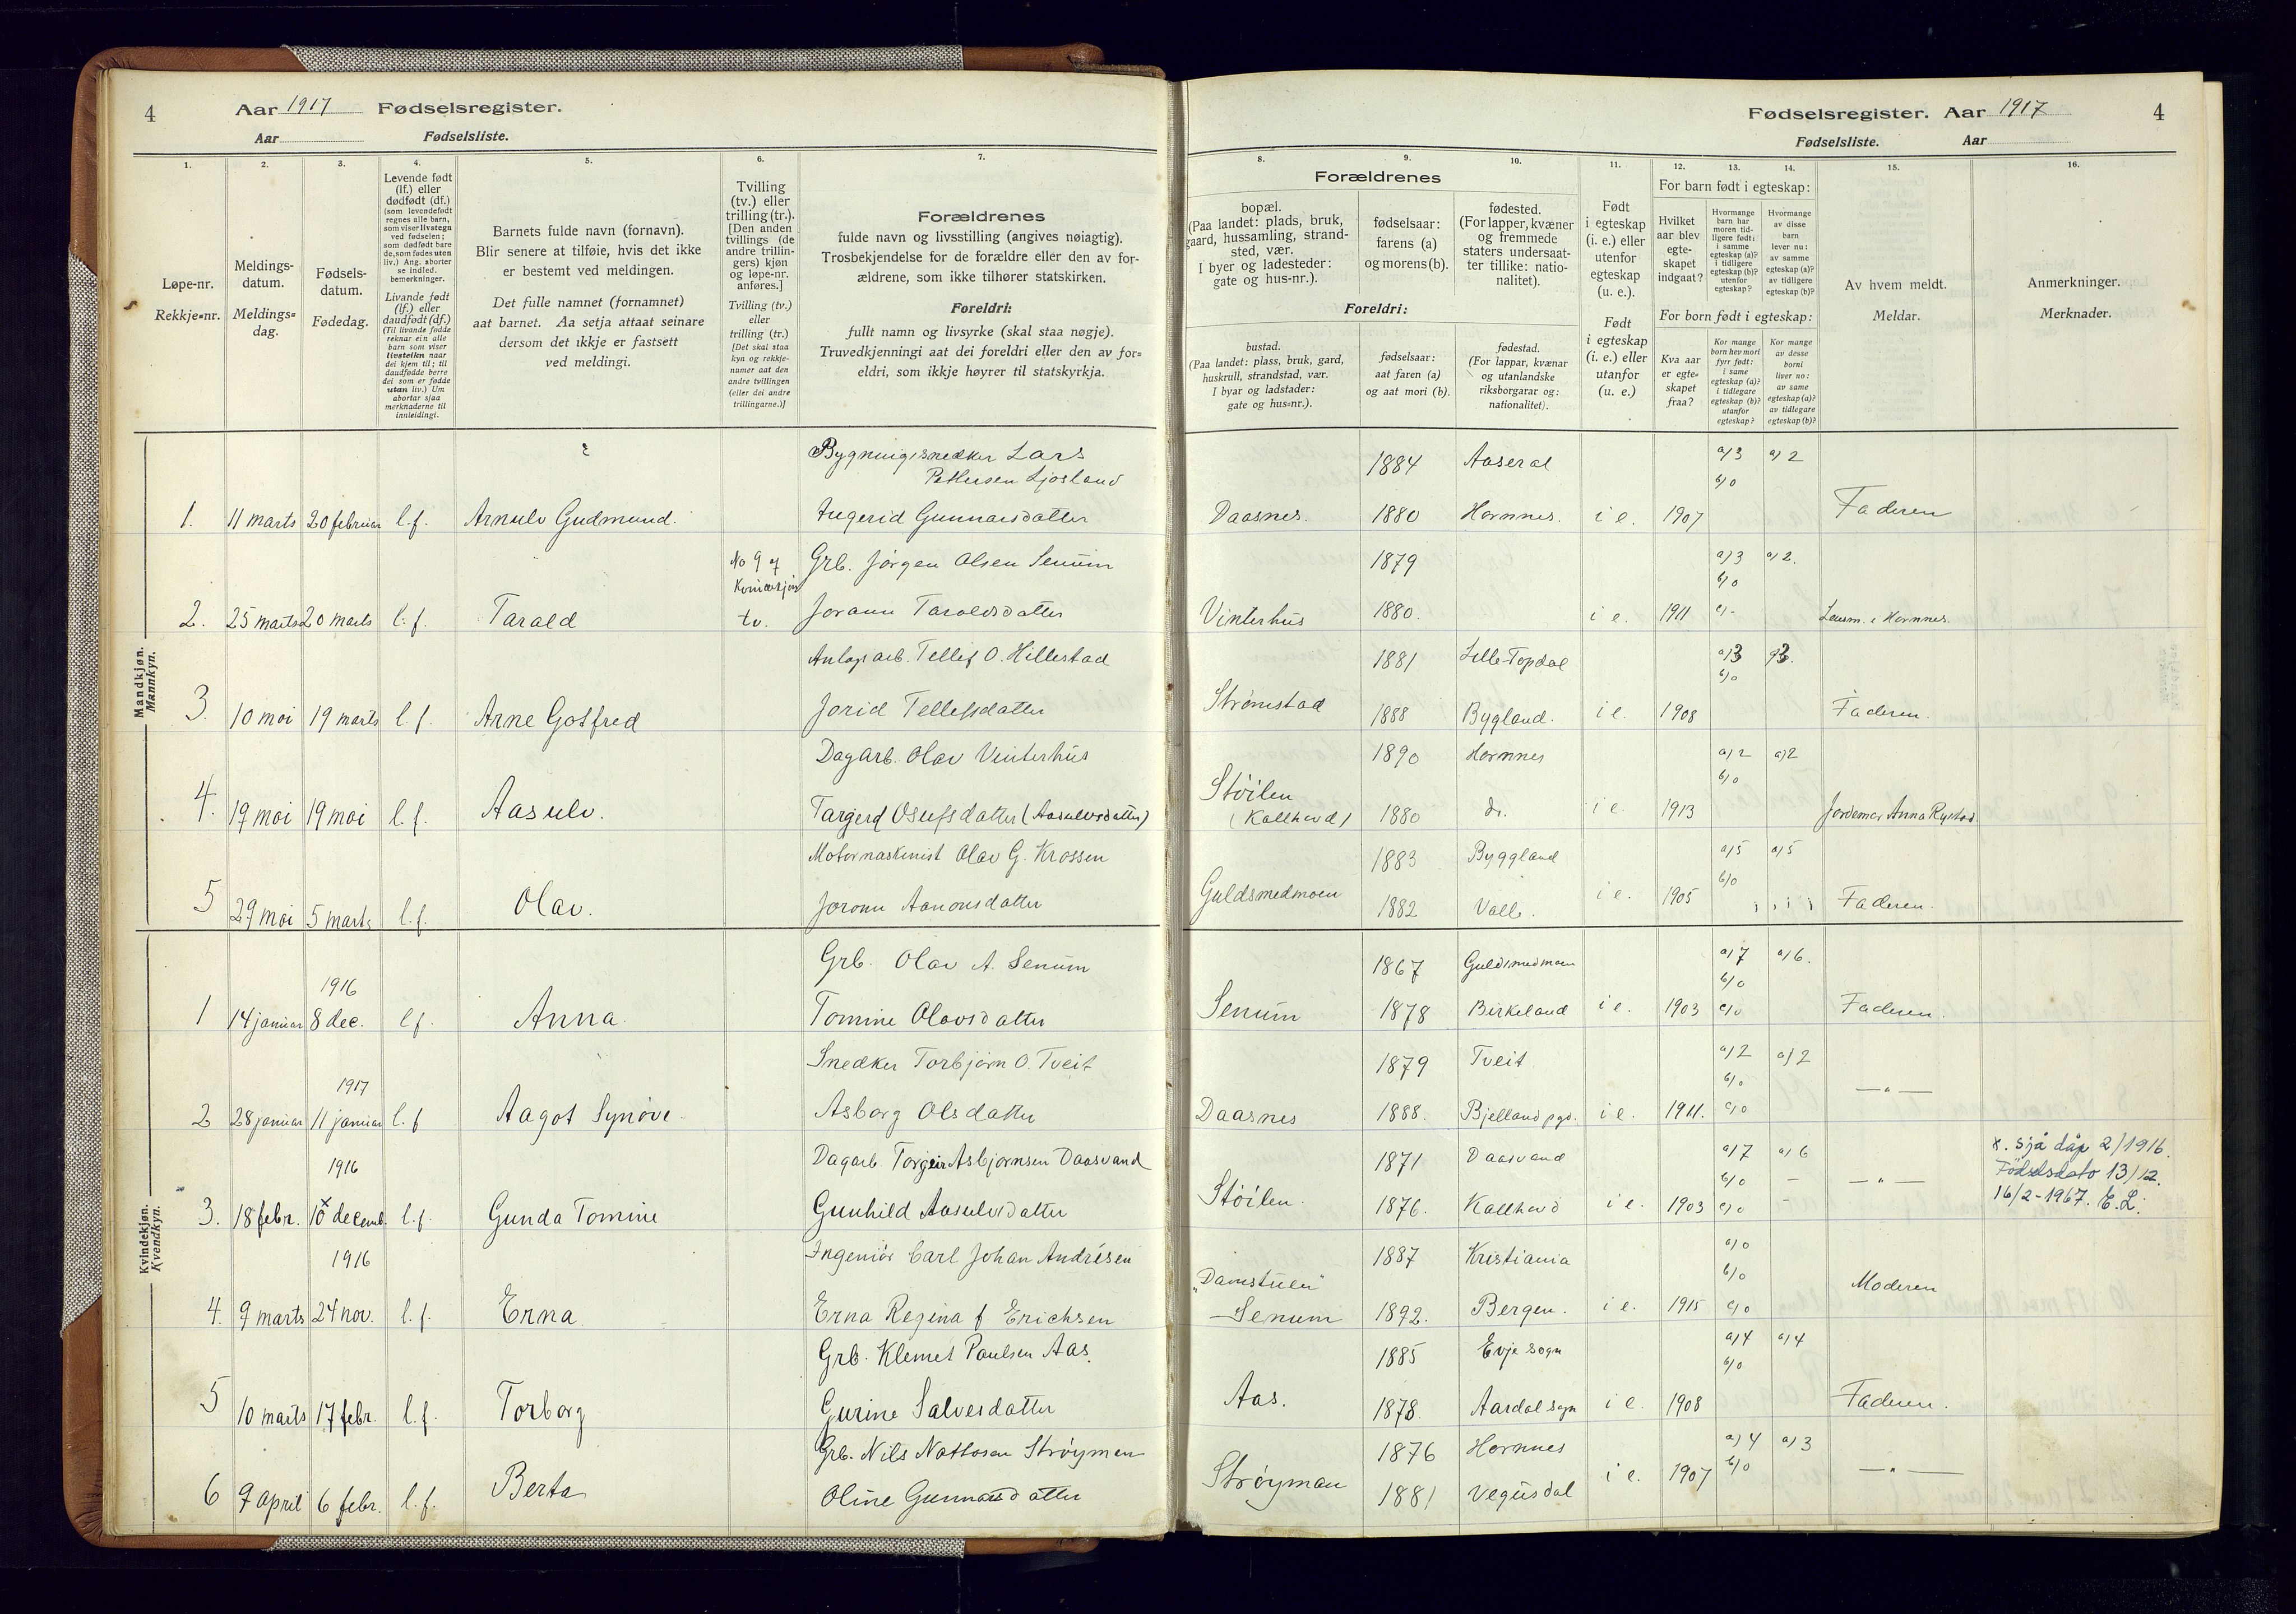 4 Aar 1917 Fødselsregister.
Aar Fødselsliste.
1. 2. 3. 4. 5. 6. 7.
Løpe-nr.
Rekkje=nr.
Meldings-
datum.
Meldings=
dag.
Fødsels-
datum.
Fødedag.
Levende født
(lf.) eller
dødfødt (df.)
(som levendefødt
regnes alle barn,
som viser livstegn
ved fødselen;
som dødfødt bare
de, som fødes uten
liv.) Ang. aborter
se indled.
bemerkninger.
Livande født
(lf.) eller
daudfødt (df.)
(Til livande fødde
reknar ein alle
barn som viser
livsteikn naar
dei kjem til; til
daudfødde berre
dei som er fødde
utan liv.) Um
abortar sjaa
merknaderne til
innleidingi.
Barnets fulde navn (fornavn).
Blir senere at tilføie, hvis det ikke
er bestemt ved meldingen.
Det fulle namnet (fornamnet)
aat barnet. Aa setja attaat seinare
dersom det ikkje er fastsett
ved meldingi.
Tvilling
(tv.) eller
trilling (tr.).
[Den anden
tvillings (de
andre trillin-
gers) kjøn
og løpe-nr.
anføres.]
Tvilling (tv.)
eller
trilling (tr.)
[Det skal staa
kyn og rekkje-
numer aat den
andre tvillingen
(eller dei andre
trillingarne.)]
Forældrenes
fulde navn og livsstilling (angives nøiagtig).
Trosbekjendelse for de forældre eller den av for-
ældrene, som ikke tilhører statskirken.
Foreldri:
fullt namn og livsyrke (skal staa nøgje).
Truvedkjenningi aat dei foreldri eller den av for=
eldri, som ikkje høyrer til statskyrkja.
Mandkjøn.
Mannkyn.
Bygningssnedker Lars
Pettersen Ljosland
1. 11 marts 20 februar l.f. Arnulv Gudmund. Ingerid Gunnarsdatter
No 9 af
Kvindekjøn
Grb. Jørgen Olsen Senum
2. 25 marts 20 marts l.f. Tarald tv. Jorann Taraldsdatter
Anlegs arb. Tellef O. Hillestad
3. 10 mai 19 marts l.f. Arne Gotfred Jorid Tellefsdatter
Dagarb. Olav Vinterhus
4. 19 mai 19 mai l.f. Aasulv. Targerd Osufsdatter (Aasulvsdatter)
Motormaskinist Olav G. Krossen
5 29 mai 5 marts l.f. Olav. Joronn Aanonsdatter
Kvindekjøn.
Kvendkyn.
Grb. Olav A. Senum
1916
1 14 januar 8 dec. l.f. Anna. Tomine Olavsdatter
Snedker Torbjørn O. Tveit
1917
2 28 januar 11 januar l.f Aagot Synøve. Asborg Olsdatter
Dagarb Torgeir Asbjørnsen Daasvand
1916
3. 18 febr. 10 x decemb. l.f. Gunda Tomine Gunhild Aasulvsdatter
Ingeniør Carl Johan Andrésen
1916
4. 9 marts 24 nov. l.f. Erna Erna Regina f Erichsen
Grb. Klemet Paulsen Aas.
5 10 marts 17 febr. l.f. Torborg Gurine Salvesdatter
Grb. Nils Nottosen Strøyman
6 9 april 6 febr. l.f. Berta Oline Gunnarsdatter
Fødselsregister. Aar 1917 4
Fødselsliste. Aar
8. 9. 10. 11. 12. 13. 14. 15. 16.
Forældrenes
bopæl.
(Paa landet: plads, bruk,
gaard, hussamling, strand-
sted, vær.
I byer og ladesteder:
gate og hus-nr.).
fødselsaar:
farens (a)
og morens (b).
fødested.
(For lapper, kvæner
og fremmede
staters undersaat-
ter tillike: natio-
nalitet).
Foreldri:
bustad.
(Paa landet: plass, bruk, gard,
huskrull, strandstad, vær.
I byar og ladstader:
gate og hus=nr.).
fødselsaar:
aat faren (a)
og aat mori (b).
fødestad.
(For lappar, kvænar
og utanlandske
riksborgarar og:
nationalitet).
Født
i egteskap
(i. e.) eller
utenfor
egteskap
(u. e.).
Født
i egteskap
(i. e.) eller
utanfor
(u. e.)
For barn født i egteskap:
Hvilket
aar blev
egte-
skapet
indgaat?
Hvormange
barn har
moren tid-
ligere født:
i samme
egteskap (a)?
i tidligere
egteskap (b)?
utenfor
egteskap?
Hvormange
av disse
barn
lever nu:
av samme
egteskap (a)?
av tidligere
egteskap (b)?
For born født i egteskap:
Kva aar
er egte=
skapet
fraa?
Kor mange
born hev mori
fyrr født:
i same
egteskap (a)?
i tidlegare
egteskap (b)?
utanfor
egteskap?
Kor mange
av desse
borni
liver no:
av same
egteskap (a)?
av tidlegare
egteskap (b)?
Av hvem meldt.
Meldar.
Anmerkninger.
Merknader.
1884 Aaseral a) 3 a) 2
b) 0
Daasnes. 1880 Hornnes. i e. 1907 Faderen
1879 a) 3 a) 2.
b) 0
Vinterhus 1880. i e. 1911 c) - Lensm. i Hornnes.
1881 Lille-Topdal a) 3 a) 3.
b) 0
Strømstad 1888 Bygland. i e. 1908 Faderen.
1890 Hornnes a) 2 a) 2
b) 0
Støilen
(Kallhovd) 1880 do. i e. 1913 Jordemor Anna Rystad.
1883 Byggland a) 5 a) 5
b) 0
Guldsmedmoen 1882 Valle. i e. 1905 Faderen.
1867 Guldsmedmoen a) 7 a) 6.
b) 0
Senum 1878 Birkeland i e. 1903 c) 0 Faderen.
1879 Tveit a) 2 a) 2
b) 0 — " —
Daasnes 1888. Bjelland pgd. i e. 1911. c) 0
1871 Daasvand a) 7 a) 6
b) 0 - — " —
Støilen. 1876. Kallhovd i e. 1903 c) 0 -
x. sjå dåp 2/1916.
Fødselsdato 13/12.
16/2-1967. E.L.
1887 Kristiania a) 0
b) 0
"Damstuen"
— Senum 1892. Bergen. i e. 1915 c) 0 Moderen
1885 Evje sogn a) 4 a) 4
b) 0
Aas. 1878. Aardal sogn i e. 1908 Faderen.
1876 Hornnes a) 4 a) 3
b) 0
Strøyman 1881 Vegusdal i e. 1907 — " —